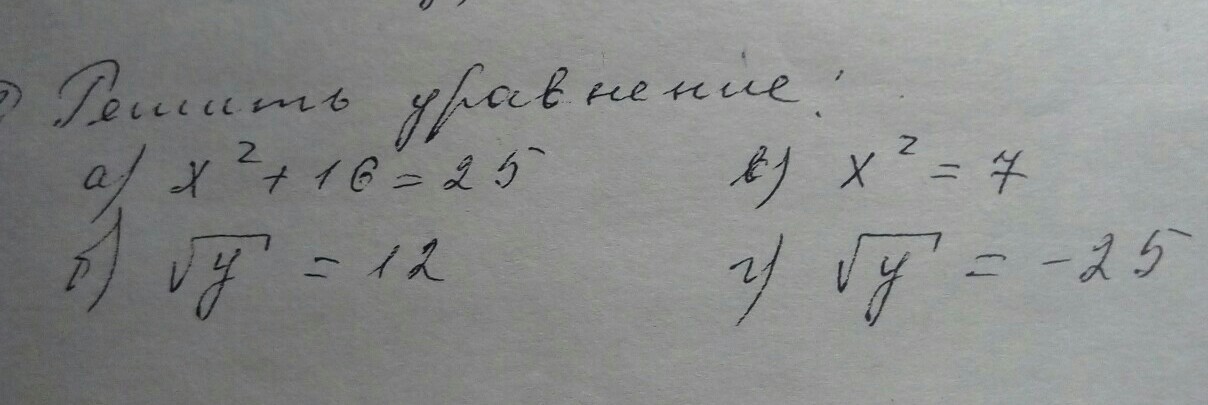 Решить уравнение:
а) x² + 16 = 25 в) x² = 7
б) √y = 12 г) √y = -25